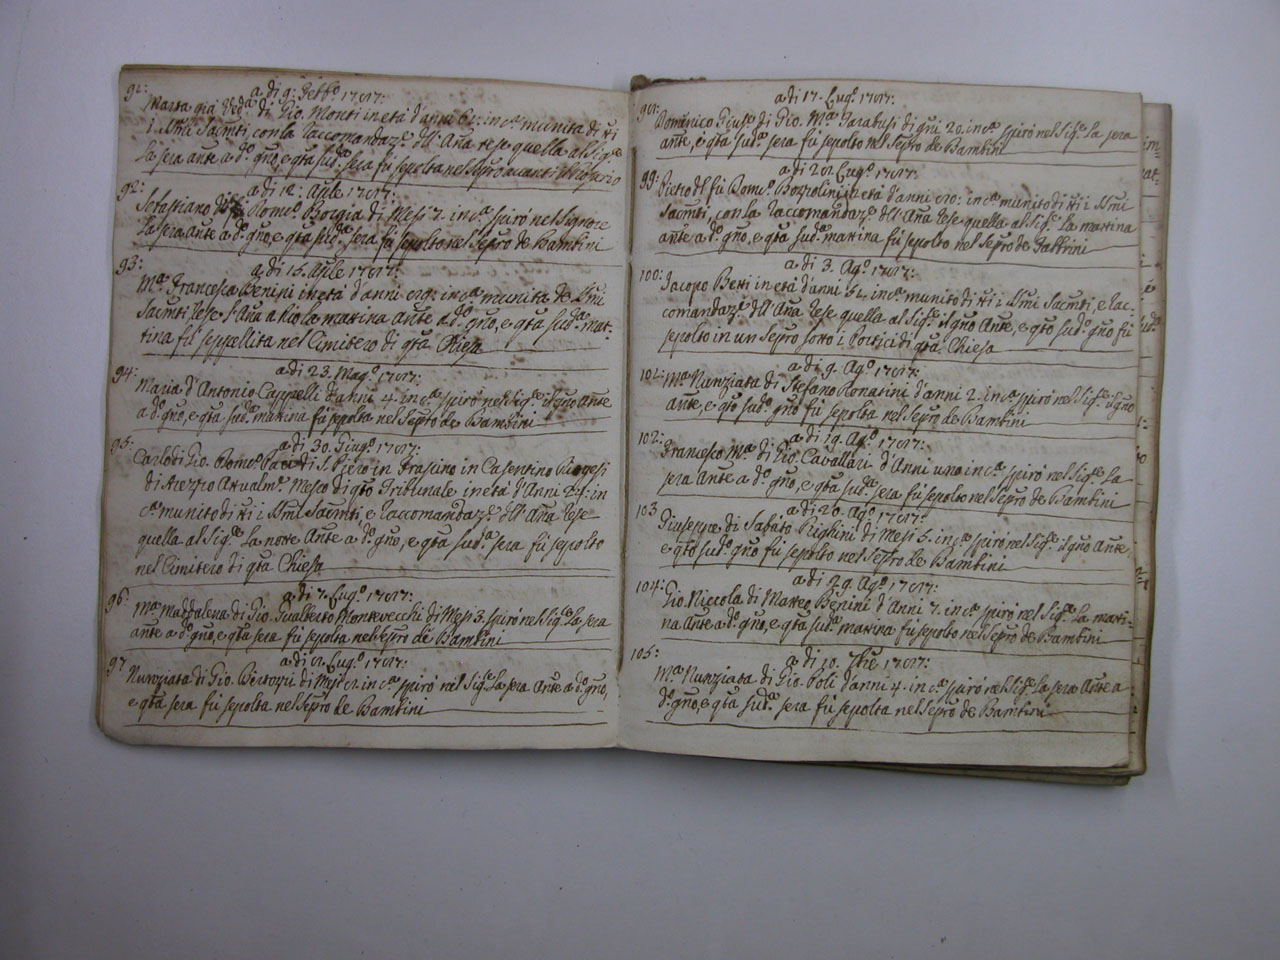 91:
a dì 9. Febb.o 1787:
Marta già Ved.a di Gio. Monti in età d'anni 61: in c.a munita di tt.i
i SSmi Sacmti con la raccomandaz.e dll'Aña rese quella al Sig.re
la sera ante a d.o gno, e qta sud.a sera fù sepolta nel Sepro avanti
92:
a dì 12. Aple 1787:
Sebastiano di Dom.o Borgia di Mesi 7. in c.a spirò nel Signore
la sera ante a d.o gno, e qta sud.a sera fù sepolto nel Sepro de Bambini
93:
a dì 15. Aple 1787:
M.a Francesca Benini in età d'anni 89: in c.a munita de SSmi
Sacmti rese l'Aña a Dio la matina ante a d.o gno, e qta sud.a mat:
tina fù seppellita nel Cimitero di qta Chiesa
94:
a dì 23. Mag.o 1787:
Maria d'Antonio Cappelli d'anni 4. in c.a spirò nel Sig.e il gno ante
a d.o gno, e qta sud.a matina fù sepolta nel Sepro de Bambini
95:
a dì 30. Giug.o 1787:
Carlo di Gio. Dom.o Paci di S. Piero in Frascino in Casentino
di Arezzo Attualm.e Messo di qto Tribunale in età d'Anni 24: in
c.a munito di tt.i i SSmi Sacmti, e raccomandaz.e dll'Aña rese
quella al Sig.e la notte Ante a d.o gno, e qta sud.a sera fù sepolto
nel Cimitero di qta Chiesa
96:
a dì 7. Lug.o 1787:
M.a Maddalena di Gio. Gualberto Montevecchi di Mesi 3. spirò nel Sig.e la sera
ante a d.o gno, e qta sera fù sepolta nel Sepro de Bambini
97
a dì 8. Lug.o 1787:
Nunziata di Gio. Bertozzi di Mesi 8. in c.a spirò nel Sig.e la sera Ante a d.o gno,
e qta sera fù sepolta nel Sepro de Bambini
98:
a dì 17. Lug.o 1787:
Domenico Giuse di Gio. M.a Tarabusi di gni 20. in c.a spirò nel Sig.e la sera
ante, e qta sud.a sera fù sepolto nel Sepro de Bambini
99:
a dì 28. Lug.o 1787:
Pietro dl fù Dom.o Bozzolini in età d'anni 80: in c.a munito di tt.i i SSmi
Sacmti, con la raccomandaz.e dll'Aña rese quella al Sig.e la matina
ante a d.o gno, e qta sud.a matina fù sepolto nel Sepro de Fabbrini
100:
a dì 3. Ag.o 1787:
Jacopo Berti in età d'anni 64. in c.a munito di tt.i i SSmi Sacmti, e rac-
comandaz.e dll'Aña rese quella al Sig.e il gno Ante, e qto sud.o gno fù
sepolto in un Sepro sotto i Portici di qta Chiesa
101:
a dì 9. Ag.o 1787:
M.a Nunziata di Stefano Donatini d'anni 2. in c.a spirò nel Sig.e il gno
ante, e qto sud.o gno fù sepolta nel Sepro de Bambini
102:
a dì 19. Ag.o 1787:
Francesco M.a di Gio. Cavallari d'Anni uno in c.a spirò nel Sig.e la
sera Ante a d.o gno, e qta sud.a sera fù sepolto nel Sepro de Bambini
103
a dì 20. Ag.o 1787:
Giuseppe di Sabato Righini di Mesi 6. in c.a spirò nel Sig.e il gno Ante,
e qto sud.o gno fù sepolto nel Sepro de Bambini
104:
a dì 29. Ag.o 1787:
Gio. Niccola di Matteo Benini d'Anni 7. in c.a spirò nel Sig.e la mati-
na Ante a d.o gno, e qta sud.a matina fù sepolto nel Sepro de Bambini
105:
a dì 10. 7bre 1787:
M.a Nunziata di Gio. Poli d'anni 4. in c.a spirò nel Sig.e la sera Ante a
d.o gno, e qta sud.a sera fù sepolta nel Sepro de Bambini